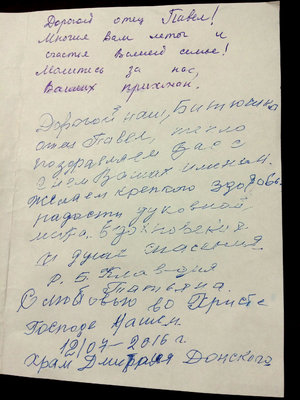 Дорогой отец Павел!
Многая Вам лета и
счастья Вашей семье!
Молитесь за нас,
Ваших прихожан.
Дорогой наш, Батюшка
отец Павел, тепло
поздравляем Вас с
Днем Ваших именин.
Желаем крепкого здоровья
радости духовной
мира, вдохновения
и душе спасения
Р. Б. Клавдия
Татьяна.
С любовью во Христе
Господе Нашем
12/07-2016 г.
Храм Дмитрия Донского